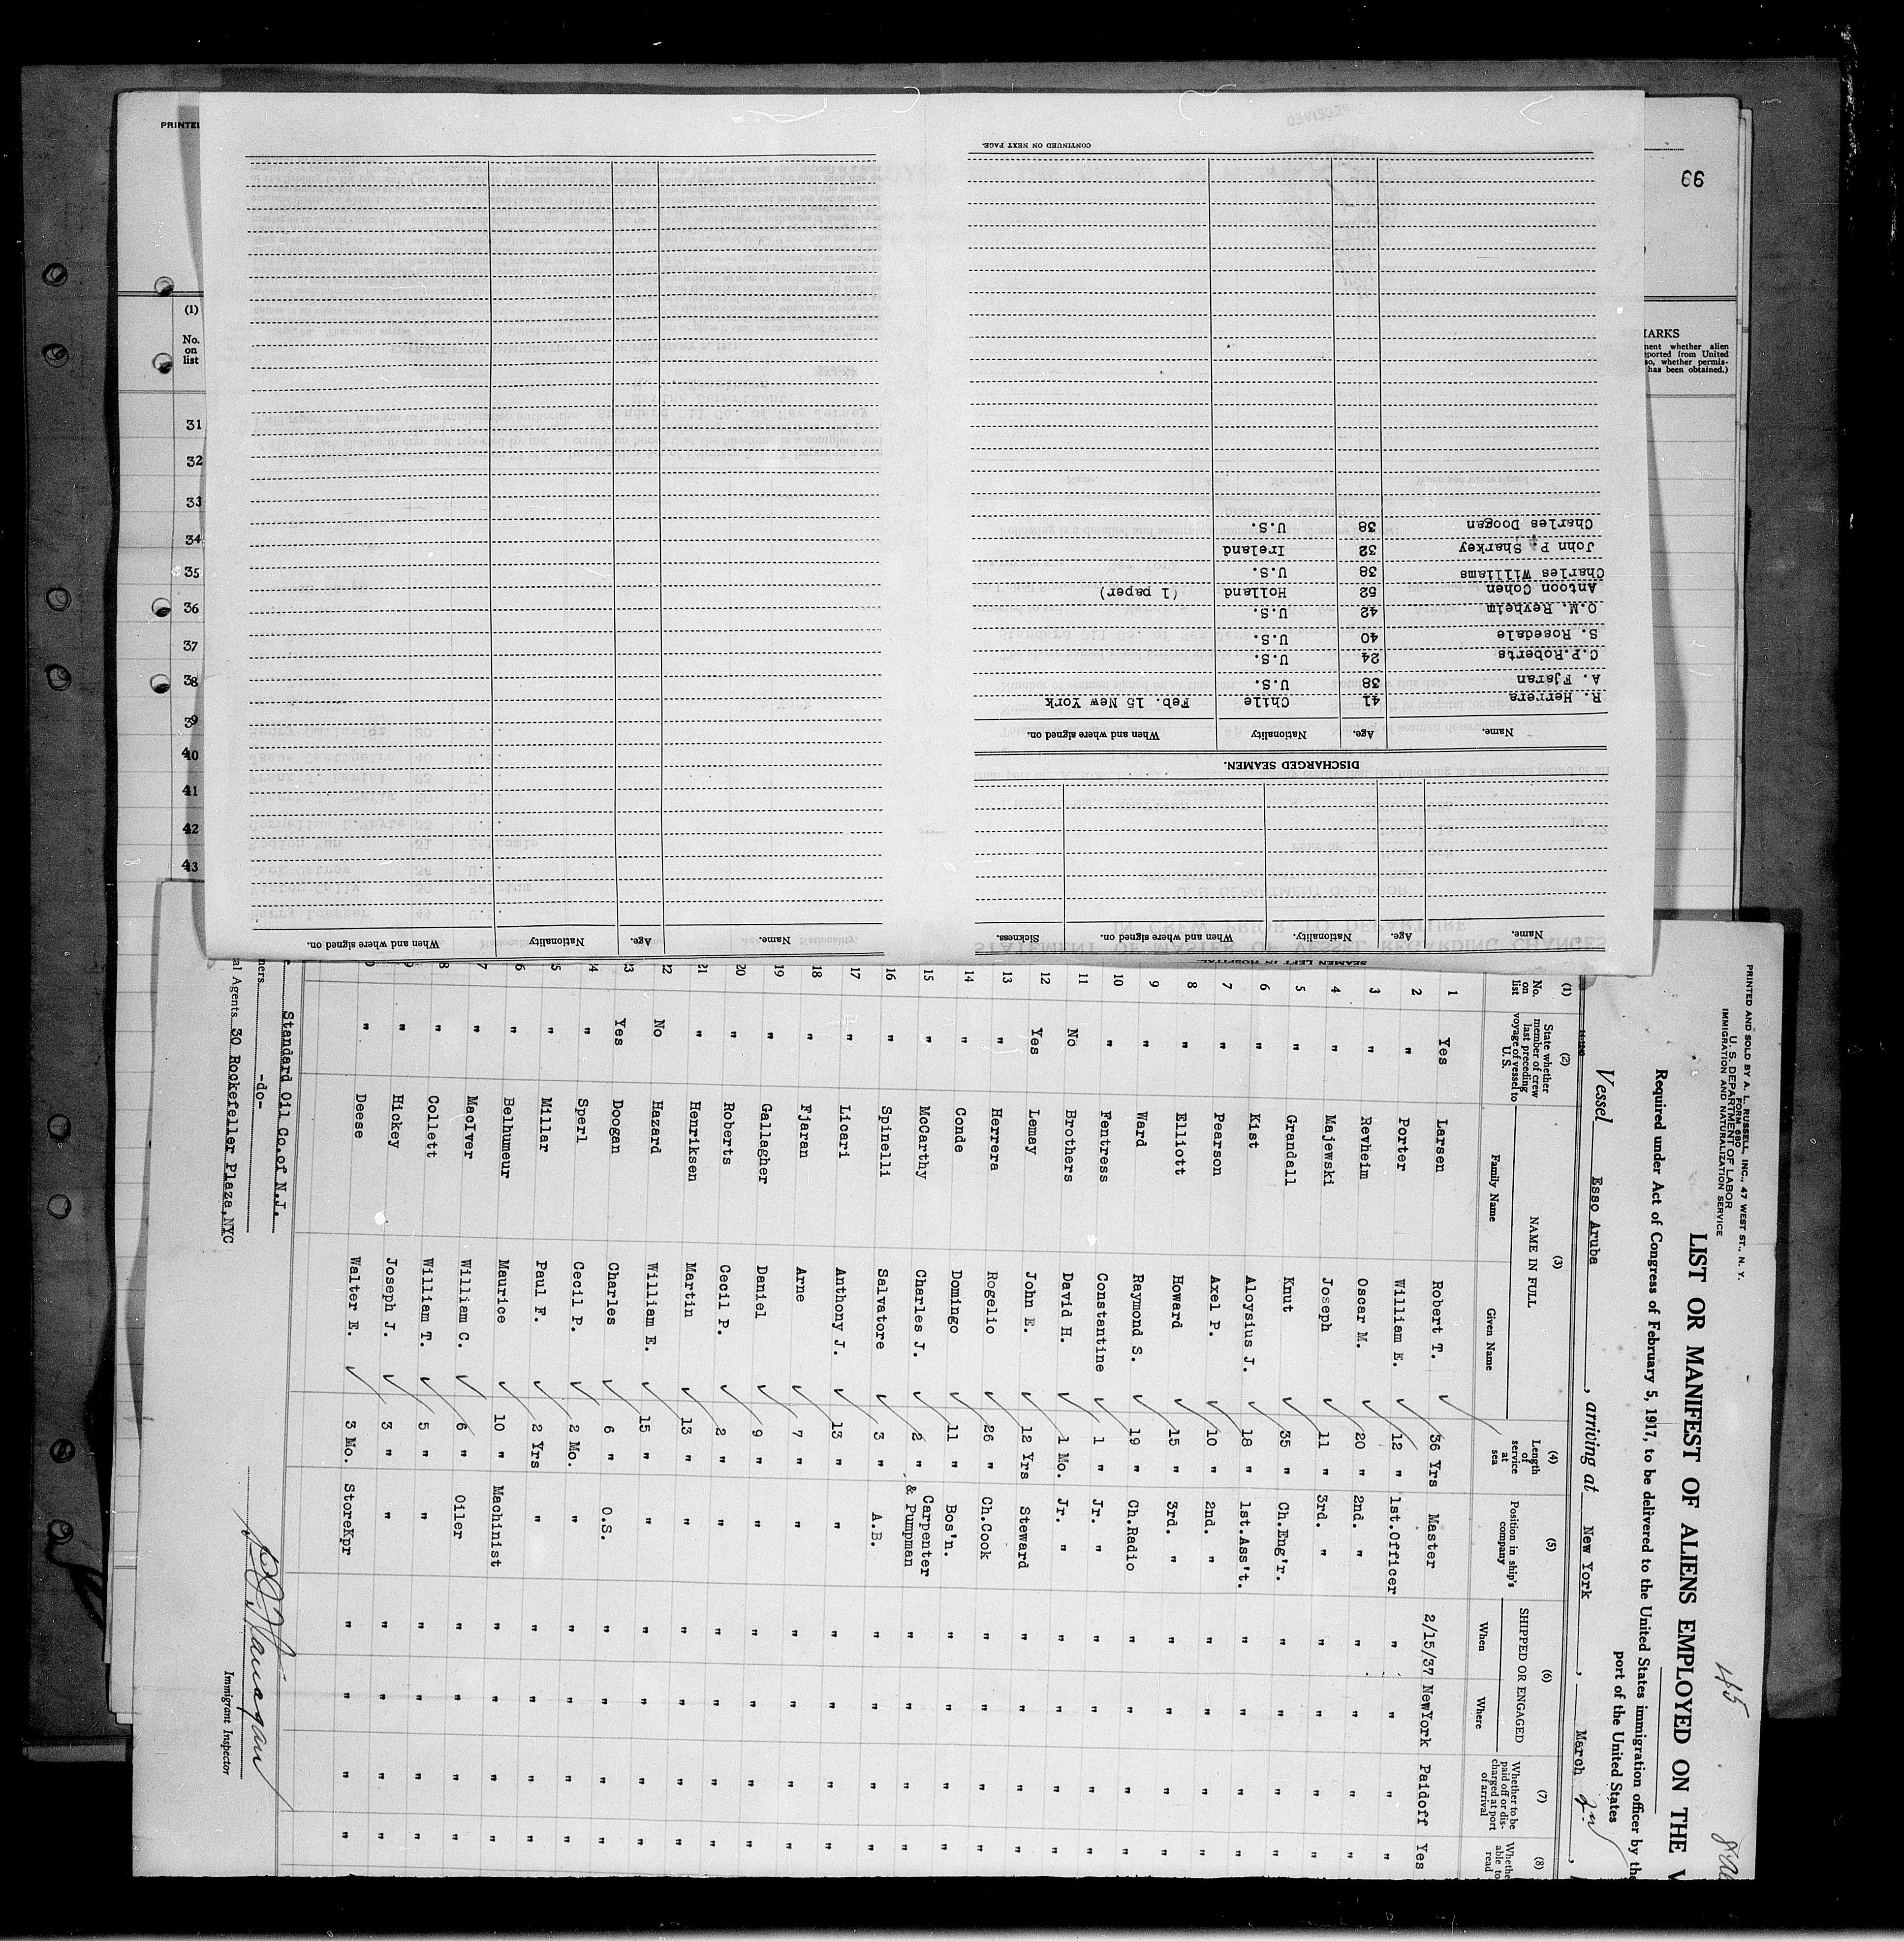 PRINTED
66
(1)
No.
on
list
31
32
33
34
35
36
37
38
39
40
41
42
43
MARKS
ment whether alien
eported from United
so, whether permis-
has been obtained.)
SEAMEN LEFT IN HOSPITAL.
Name. Age. Nationality. When and where signed on. Sickness.
DISCHARGED SEAMEN.
Name. Age. Nationality When and where signed on.
R. Herrera 41 Chile Feb. 15 New York
A. Fjaran 38 U.S.
C.P.Roberts 24 U.S.
S. Rosedale 40 U.S.
O.M. Revheim 42 U.S.
Antoon Cohen 52 Holland (1 paper)
Charles Williams 38 U.S.
John P. Sharkey 32 Ireland
Charles Doogan 38 U.S.
CONTINUED ON NEXT PAGE.
Name. Age. Nationality When and where signed on.
PRINTED AND SOLD BY A. L. RUSSELL, INC., 47 WEST ST., N. Y.
FORM 680
U. S. DEPARTMENT OF LABOR
IMMIGRATION AND NATURALIZATION SERVICE
45
LIST OR MANIFEST OF ALIENS EMPLOYED ON THE V
Required under Act of Congress of February 5, 1917, to be delivered to the United States immigration officer by the
port of the United States
Vessel Esso Aruba, arriving at New York, March
(1) (2) (3) (4) (5) (6) (7) (8)
No. on list
State whether member of crew last preceding voyage of vessel to U.S.
NAME IN FULL
Family Name Given Name
Length of service at sea
Position in ship's company
SHIPPED OR ENGAGED
When Where
Whether to be paid off or discharged at port of arrival
Whethe able to read
1 Yes Larsen Robert T. 36 Yrs Master 2/15/37 NewYork Paidoff Yes
2 " Porter William E. 12 " 1st.Officer " " " "
3 " Revheim Oscar M. 20 " 2nd. " " " " "
4 " Majewski Joseph 11 " 3rd. " " " " "
5 " Grandall Knut 35 " Ch.Eng'r. " " " "
6 " Kist Aloysius J. 18 " 1st.Ass't. " " " "
7 " Pearson Axel P. 10 " 2nd. " " " " "
8 " Elliott Howard 15 " 3rd. " " " " "
9 " Ward Raymond S. 19 " Ch.Radio " " " "
10 " Fentress Constantine 1 " Jr. " " " " "
11 No Brothers David H. 1 Mo. Jr. " " " " "
12 Yes Lemay John E. 12 Yrs Steward " " " "
13 " Herrera Rogelio 26 " Ch.Cook " " " "
14 " Conde Domingo 11 " Bos'n. " " " "
15 " McCarthy Charles J. 2 " Carpenter & Pumpman " " " "
16 " Spinelli Salvatore 3 " A.B. " " " "
17 " Licari Anthony J. 13 " " " " " "
18 " Fjaran Arne 7 " " " " " "
19 " Gallagher Daniel 9 " " " " " "
20 " Roberts Cecil P. 2 " " " " " "
21 " Henriksen Martin 13 " " " " " "
22 No Hazard William E. 15 " " " " " "
23 Yes Doogan Charles 6 " O.S. " " " "
24 " Sperl Cecil P. 2 Mo. " " " " "
5 " Millar Paul F. 2 Yrs " " " " "
6 " Belhumeur Maurice 10 " Machinist " " " "
7 " MacIver William C. 6 " Oiler " " " "
8 " Collett William T. 5 " " " " " "
9 " Hickey Joseph J. 3 " " " " " "
0 " Deese Walter E. 3 Mo. StoreKpr " " " "
Standard Oil Co.of N.J.
ners -do-
al Agents 30 Rockefeller Plaza,NYC
Immigrant Inspector